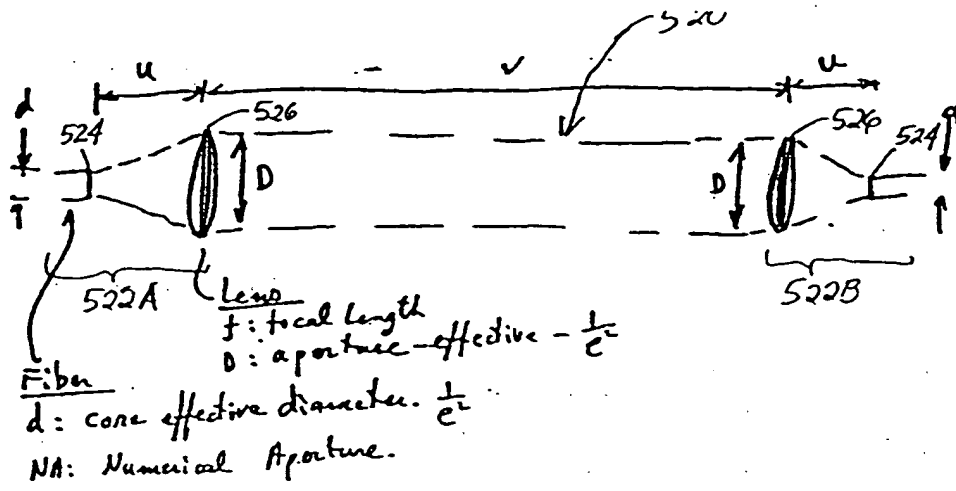 520
u
v
u
d
524
526
D
D
526
524
d
522A
522B
Lens
f: focal length
D: aperture-effective - 1/e²
Fiber
d: core effective diameter. 1/e²
NA: Numerical Aperture.